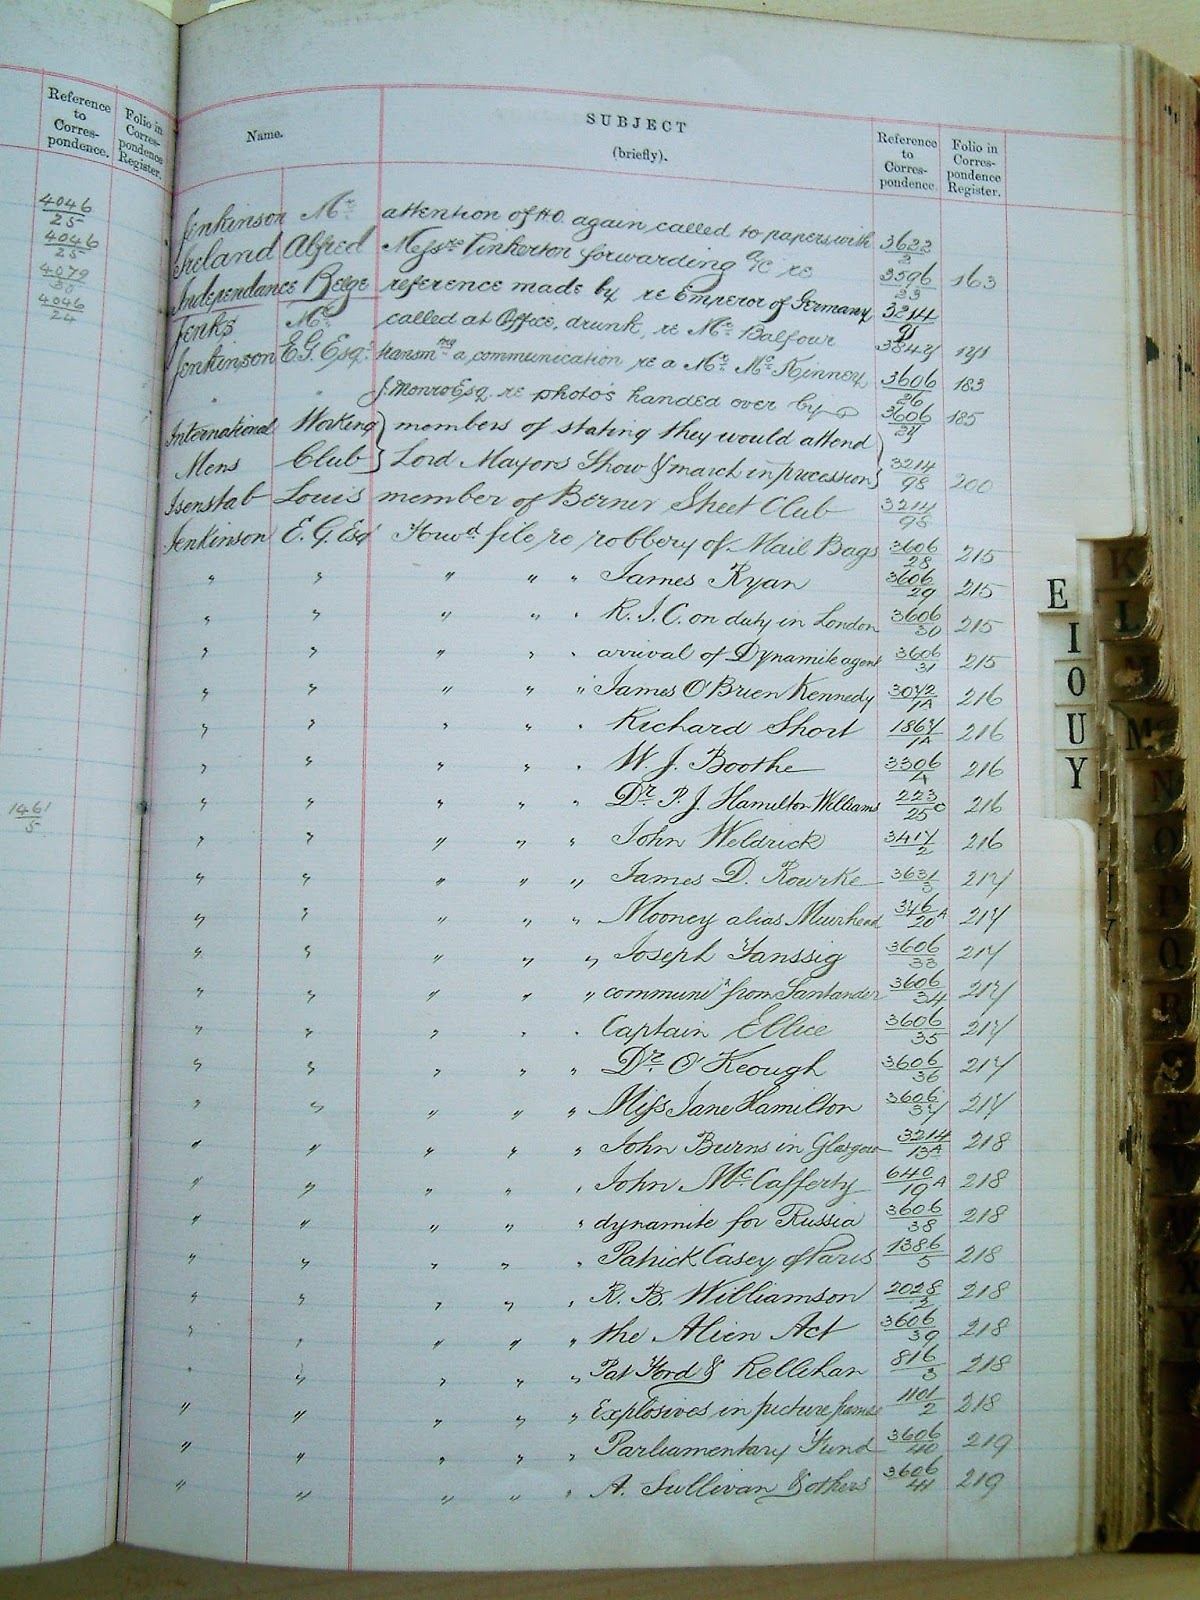 Reference
to
Corres-
pondence.
Folio in
Corres-
pondence
Register.
4046
25
4046
25
4079
30
4046
24
1461
5
Name.
SUBJECT
(briefly).
Reference
to
Corres-
pondence.
Folio in
Corres-
pondence
Register.
Jenkinson Mr attention of HO. again called to papers with 3622/2
Ireland Alfred Messrs Pinkerton forwarding a/c re 3596/33 163
Independance Belge reference made by re Emperor of Germany 3214/91
Jenks Mr called at Office, drunk, re Mr Balfour 3847 171
Jenkinson E.G. Esqr transmtg a communication re a Mr McKinney 3606/26 183
" " J. Monro Esq. re photo's handed over by 3606/27 185
International Working } members of stating they would attend }
Mens Club } Lord Mayors Show & march in procession } 3214/98 200
Isenstab Louis member of Berner Street Club 3214/98
Jenkinson E.G. Esq Forwd file re robbery of Mail Bags 3606/28 215
" " " " " James Ryan 3606/29 215
" " " " " R.I.C. on duty in London 3606/30 215
" " " " " arrival of Dynamite agent 3606/31 215
" " " " " James O'Brien Kennedy 3072/1A 216
" " " " " Richard Short 1867/1A 216
" " " " " W. J. Boothe 3306/A 216
" " " " " Dr P. J. Hamilton Williams 223/25 C 216
" " " " " John Weldrick 3417/2 216
" " " " " James D. Rourke 3631/3 217
" " " " " Mooney alias Muirhead 346/20 A 217
" " " " " Joseph Fanssig 3606/33 217
" " " " " communn from Santander 3606/34 217
" " " " " Captain Ellice 3606/35 217
" " " " " Dr O'Keough 3606/36 217
" " " " " Miss Jane Hamilton 3606/37 217
" " " " " John Burns in Glasgow 3214/13A 218
" " " " " John McCafferty 640/19 A 218
" " " " " dynamite for Russia 3606/38 218
" " " " " Patrick Casey of Paris 1386/5 218
" " " " " R. B. Williamson 2028/2 218
" " " " " the Alien Act 3606/39 218
" " " " " Pat Ford & Kellihan 816/3 218
" " " " " Explosives in picture frames 1101/2 218
" " " " " Parliamentary Fund 3606/40 219
" " " " " A. Sullivan & others 3606/41 219
E
I
O
U
Y
K
L
M
Mc
N
O
P
Q
R
S
T
W
X
Y